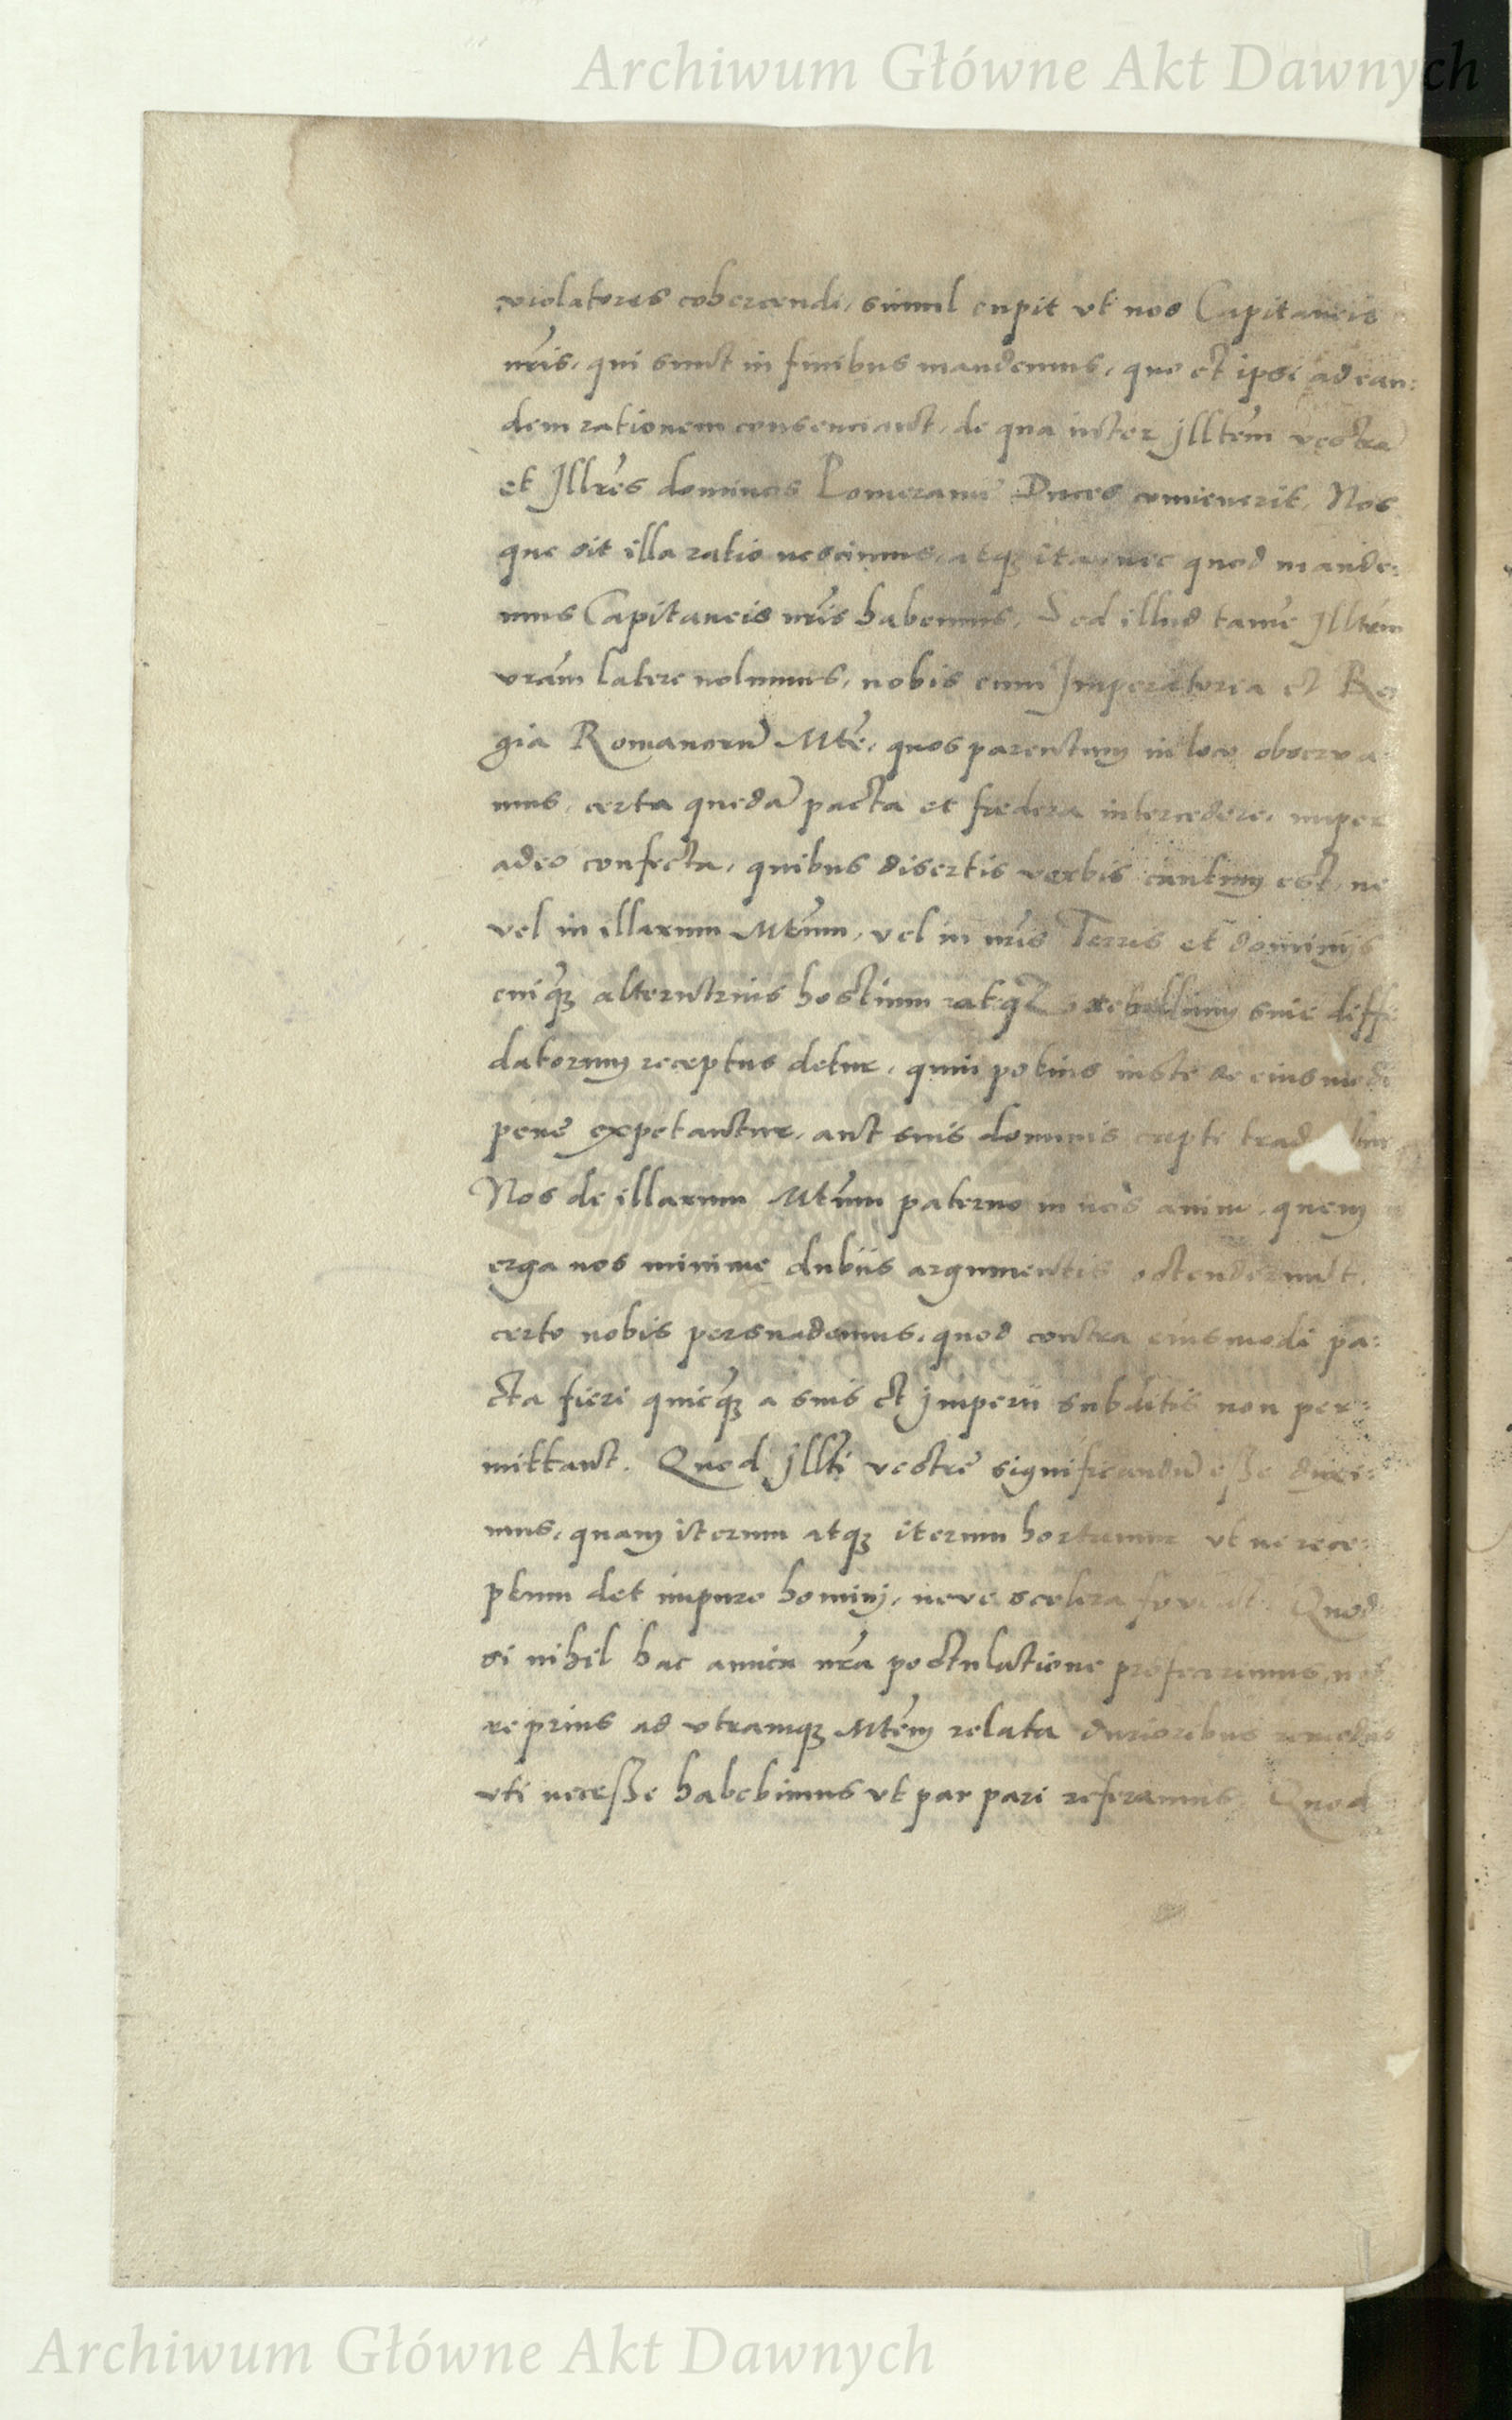 Archiwum Główne Akt Dawnych
violatores cohercendi, simul cupit vt nos Capitaneis
nr̃is, qui sunt in finibus mandemus, quo et ipsi ad ean:
dem rationem consenciant, de qua inter Jlltem̃ vestrã
et Jllr̃es dominos Pomeraniẽ Duces conuenerit, Nos
que sit illa ratio nescimus, atqȝ ita nec quod mande:
mus Capitaneis nr̃is habemus, Sed illud tamẽ Jlltem̃
vrãm latere nolumus, nobis cum Imperatorea et Re
gia Romanorũ Mte᷈, quos parentum in loco obserua
mus, certa quedã pacta et fœdera intercedere, nuper
adeo confecta, quibus disertis verbis cautum est, ne
vel in illarum Mtum̃, vel in nr̃is Terris et dominijs
cuiqȝ alterutrius hostium atqȝ rebellium siue diffi
datorum receptus detur, quin potius iuste de eiusmodi
penẽ expetantur, aut suis dominis capti trad bu
Nos de illarum Mtum̃ paterno in nos animo, quem
erga nos minime dubiis argumentis ostenderunt,
certo nobis persuademus, quod contra eiusmodi pa:
cta fieri quicqȝ a suis et jmperii subditis non per:
mittant. Quod Jllti᷈ vestrẽ significandũ esse duxi:
mus, quam iterum atqȝ iterum hortamur vt ne rece:
ptum det impuro homini, neve scelera Quod
si nihil hac amica nr̃a postulatione profecerimus,
re prius ad vtramqȝ Mtem̃ relata durioribus remediis
vti necesse habebimus vt par pari referamus, Quod
Archiwum Główne Akt Dawnych